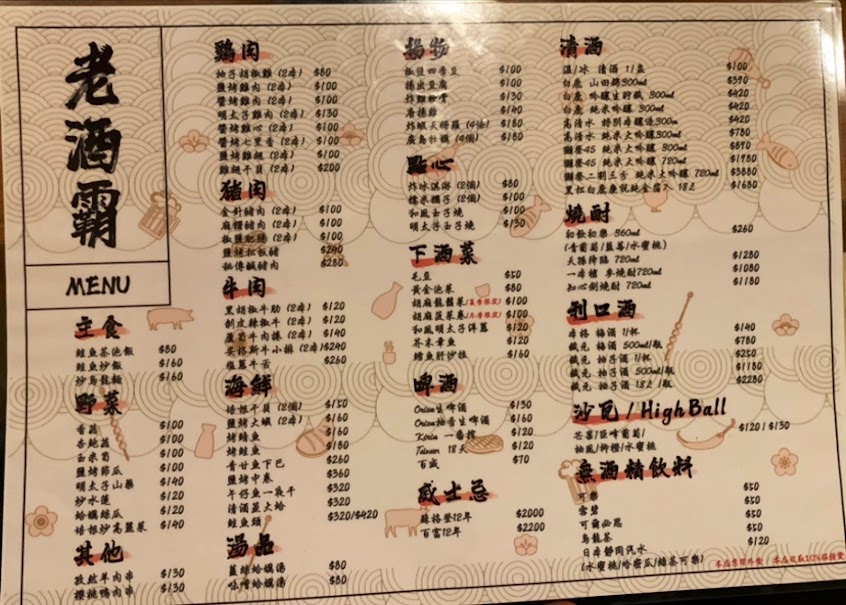 老酒霸
MENU
主食
鮭魚茶泡飯 $80
鮭魚炒飯 $160
炒烏龍麵 $160
野菜
香菇 $100
杏鮑菇 $100
玉米筍 $100
鹽烤節瓜 $100
明太子山藥 $140
炒水蓮 $120
蛤蠣絲瓜 $120
培根炒高麗菜 $140
其他
孜然羊肉串 $130
櫻桃鴨肉串 $130
鷄肉
柚子胡椒雞 (2串) $80
鹽烤雞肉 (2串) $100
醬烤雞肉 (2串) $100
明太子雞肉 (2串) $130
醬烤雞心 (2串) $100
醬烤七里香 (2串) $100
鹽烤雞翅 (2串) $100
雞翅干貝 (2串) $200
豬肉
金針豬肉 (2串) $100
麻糬豬肉 (2串) $100
椒鹽肥腸 (2串) $100
鹽烤松板豬 $240
秘傳鹹豬肉 $280
牛肉
黑胡椒牛肋 (2串) $120
剝皮辣椒牛 (2串) $120
蘆筍牛肉捲 (2串) $140
安格斯牛小排 (2串) $240
鹽蔥牛舌 $260
海鮮
培根干貝 (2個) $150
鹽烤大蝦 (2串) $160
烤鯖魚 $160
烤鮭魚 $180
青甘魚下巴 $260
鹽烤中卷 $360
午仔魚一夜干 $320
清酒蒸大蛤 $320
鮭魚頭 $320/$420
湯品
薑絲蛤蠣湯 $80
味噌蛤蠣湯 $80
揚物
椒鹽四季豆 $100
揚出豆腐 $100
炸雞軟骨 $130
唐揚雞 $140
炸蝦天婦羅 (4個) $180
廣島牡蠣 (4個) $180
點心
炸冰淇淋 (2個) $80
糯米糰子 (2個) $100
和風玉子燒 $100
明太子玉子燒 $130
下酒菜
毛豆 $50
黃金泡菜 $80
胡麻龍鬚菜(夏季限定) $100
胡麻菠菜卷(冬季限定) $100
和風明太子洋蔥 $120
芥末章魚 $120
鱈魚肝沙拉 $160
啤酒
Orion生啤酒 $130
Orion柚香生啤酒 $160
Kirin 一番搾 $120
Taiwan 18天 $120
百威 $70
威士忌
蘇格登12年 $2000
百富12年 $2200
清酒
溫/冰 清酒 1/盅 $100
白鹿 山田錦300ml $390
白鹿 吟釀生貯藏 300ml $420
白鹿 純米吟釀 300ml $420
高清水 特別本釀造300m $420
高清水 純米大吟釀300ml $780
獺祭45 純米大吟釀300ml $890
獺祭45 純米大吟釀 720ml $1980
獺祭二割三分 純米大吟釀 720ml $3880
黑松白鹿慶祝純金箔入 1.8L $1680
燒酎
初飲初樂 360ml $260
(青葡萄/藍莓/水蜜桃)
天孫降臨 720ml $1280
一本槍 麥燒酎720ml $1080
知心劍燒酎 720ml $1180
利口酒
本格 梅酒 1/杯 $140
國元 梅酒 500ml/瓶 $780
國元 柚子酒 1/杯 $250
國元 柚子酒 500ml/瓶 $1180
國元 柚子酒 1.8L/瓶 $2280
沙瓦/HighBall
芒果/巨峰葡萄/ $120/$130
柚風/檸檬/水蜜桃
無酒精飲料
可樂 $50
雪碧 $50
可爾必思 $50
烏龍茶 $50
日本靜岡汽水 $120
(水蜜桃/哈密瓜/綠茶可樂)
本店禁帶外食/本店收取10%服務費